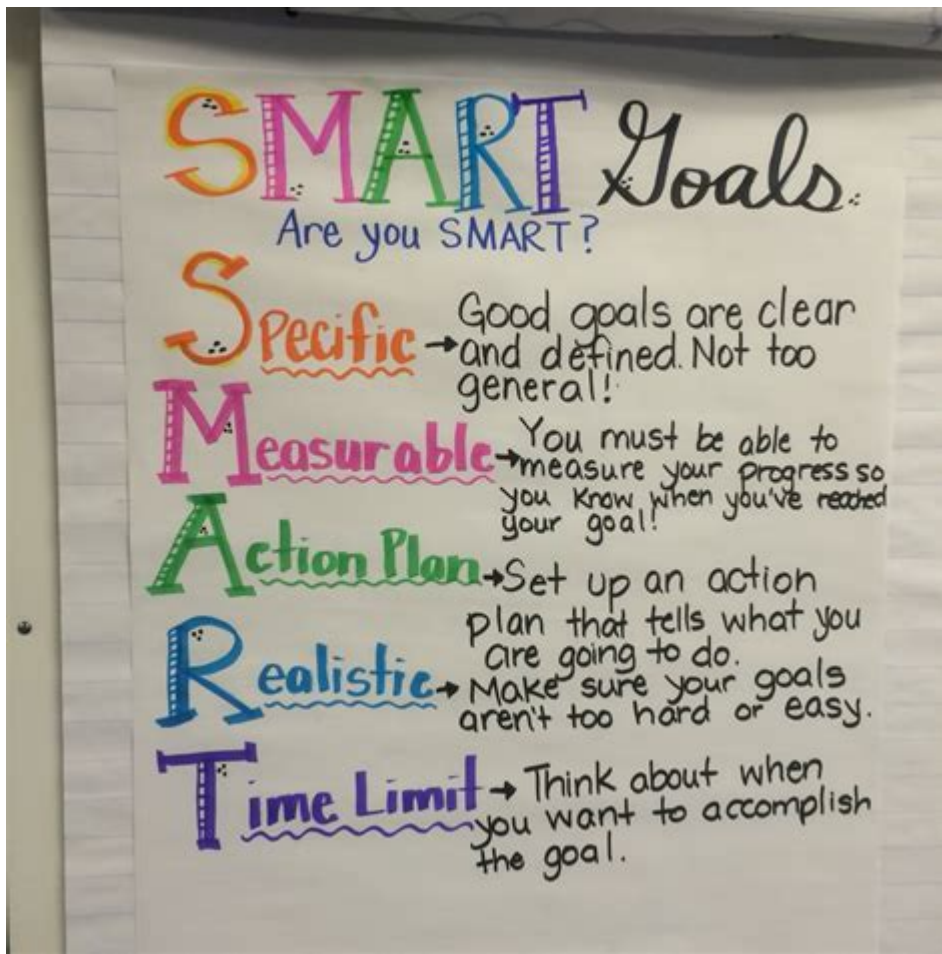 SMART Goals
Are you SMART?
Specific → Good goals are clear
and defined. Not too
general!
Measurable → You must be able to
measure your progress so
you know when you've reached
your goal!
Action Plan → Set up an action
plan that tells what you
are going to do.
Realistic → Make sure your goals
aren't too hard or easy.
Time Limit → Think about when
you want to accomplish
the goal.